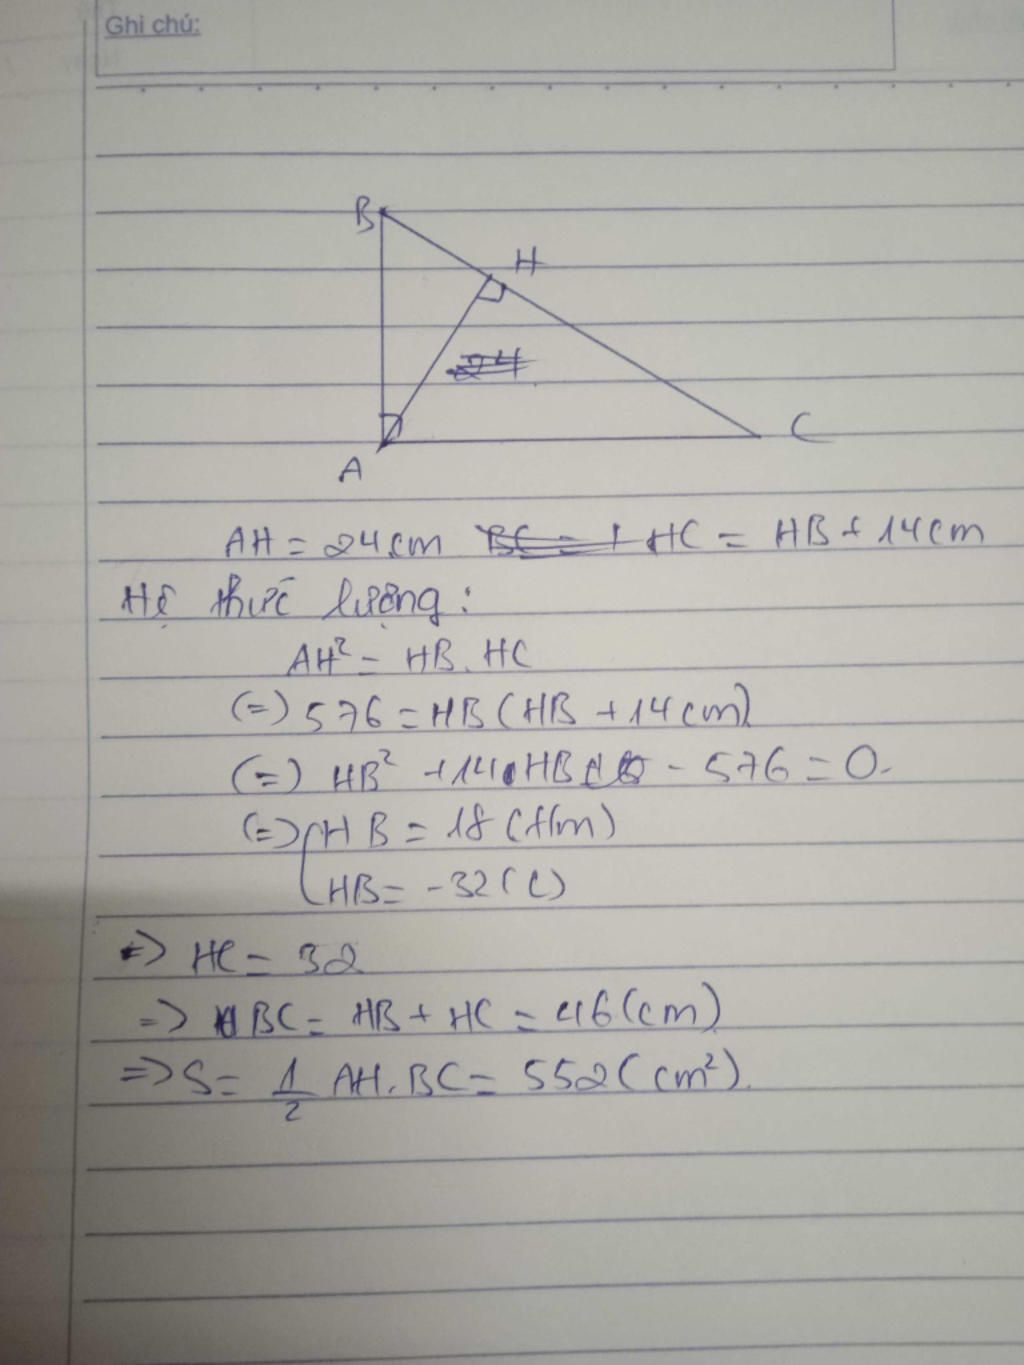 Ghi chú:
B
H
24
C
A
AH = 24 cm BC = 1 HC = HB + 14 cm
Hệ thức lượng:
AH² = HB. HC
(=) 576 = HB (HB + 14 cm)
(=) HB² + 14.HB - 576 = 0.
(=) HB = 18 (t/m)
HB = -32 (L)
=> HC = 32
=> BC = HB + HC = 46 (cm)
=> S = 1/2 AH. BC = 552 (cm²).